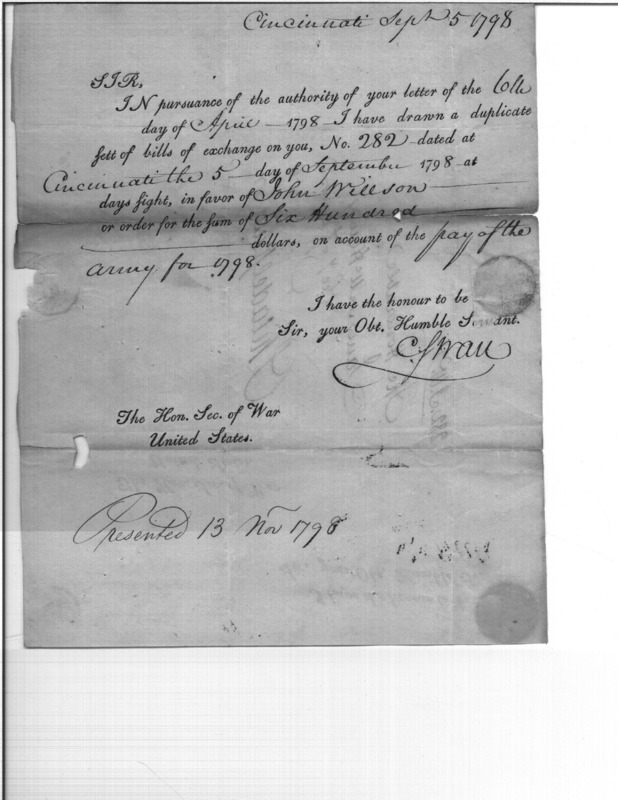 Cincinnati Sept 5 1798
SIR,
IN pursuance of the authority of your letter of the 6th
day of April — 1798 — I have drawn a duplicate
sett of bills of exchange on you, No. 282 — dated at
Cincinnati the 5 — day of September 1798 — at
days sight, in favor of John Willson
or order for the sum of Six Hundred
dollars, on account of the pay of the
army for 1798.
I have the honour to be
Sir, your Obt. Humble Servant.
C. Swan
The Hon. Sec. of War
United States.
Presented 13 Nov 1798